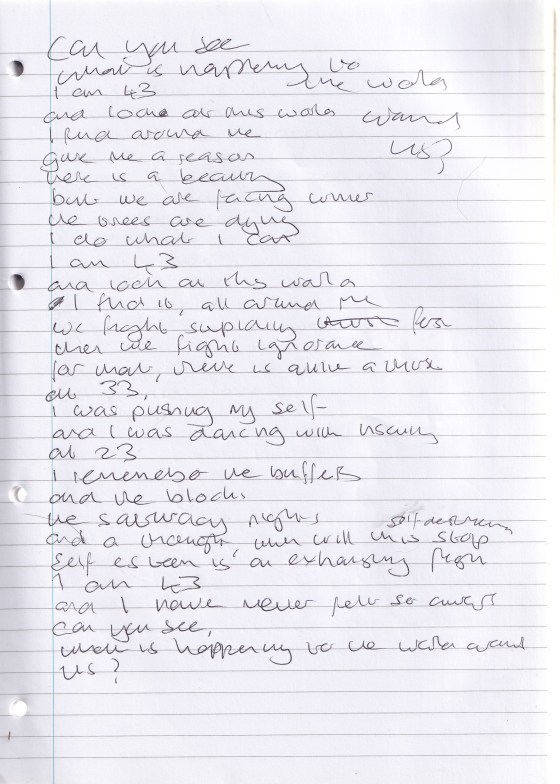 Can you see
what is happening to the world around us?
I am 43
and look at this world
I find around me
give me a reason
there is a beauty
but we are facing corner
the trees are dying
I do what I can
I am 43
and look at this world
I find it, all around me
We fight stupidity first
then we fight ignorance
for that, there is quite a
at 33,
I was pushing my self
and I was dancing with
at 23
I remember the buffets
and the blocks
the saturday nights
and a thought when will this self destruction stop
Self esteem is an exhausting fight
I am 43
and I have never felt so
Can you see,
what is happening to the world around
us?